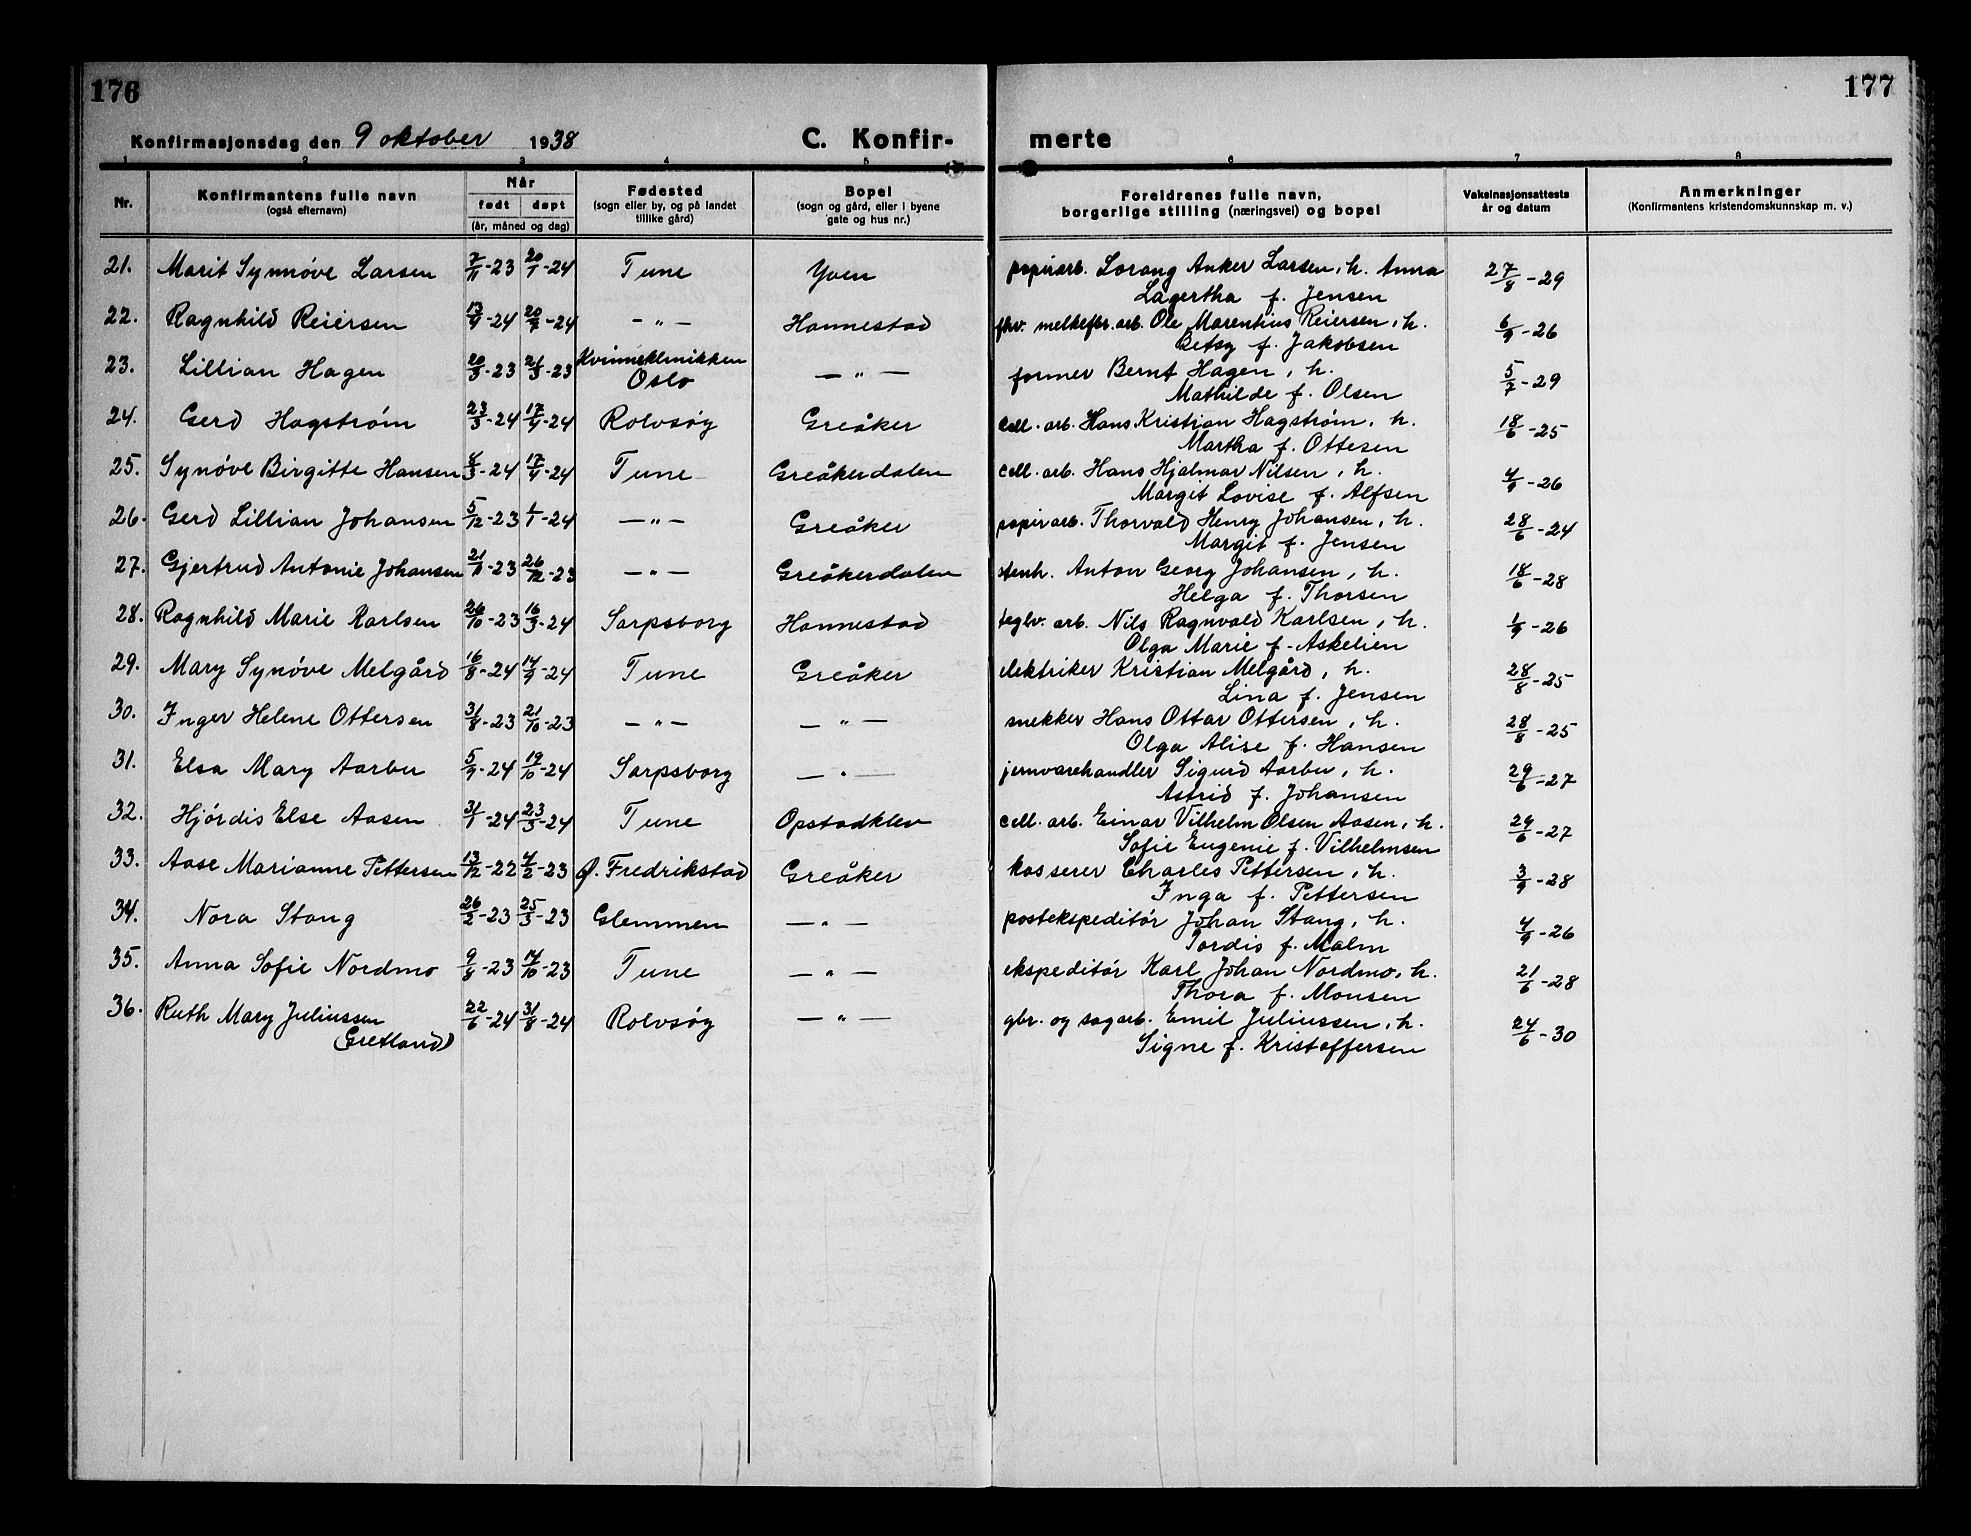 176
177
Konfirmasjonsdag den 9 oktober 1938
C. Konfir-
merte
1 2 3 4 5 6 7 8
Nr.
Konfirmantens fulle navn
(også efternavn)
Når
født døpt
(år, måned og dag)
Fødested
(sogn eller by, og på landet
tillike gård)
Bopel
(sogn og gård, eller i byene
gate og hus nr.)
Foreldrenes fulle navn,
borgerlige stilling (næringsvei) og bopel
Vaksinasjonsattests
år og datum
Anmerkninger
(Konfirmantens kristendomskunnskap m. v.)
21. Marit Synnøve Larsen 7/11-23 20/1-24 Tune Yven papirarb. Lorang Anker Larsen, h. Anna 27/8-29
Lagertha f. Jensen
22. Ragnhild Reiersen 13/4-24 20/7-24 -"- Hannestad fhv. melkefbr. arb. Ole Marentius Reiersen, h. 6/9-26
Betsy f. Jakobsen
23. Lillian Hagen 20/3-23 21/3-23 Kvinneklinikken -"- former Bernt Hagen, h. 5/7-29
Oslo Mathilde f. Olsen
24. Gerd Hagstrøm 23/3-24 17/4-24 Rolvsøy Greåker cell. arb. Hans Kristian Hagstrøm, h. 18/6-25
Martha f. Ottesen
25. Synøve Birgitte Hansen 8/3-24 17/4-24 Tune Greåkerdalen cell. arb. Hans Hjalmar Nilsen, h. 4/9-26
Margit Lovise f. Alfsen
26. Gerd Lillian Johansen 5/12-23 6/1-24 -"- Greåker papirarb. Thorvald Henry Johansen, h. 28/6-24
Margit f. Jensen
27. Gjertrud Antonie Johansen 21/11-23 26/12-23 -"- Greåkerdalen stenh. Anton Georg Johansen, h. 18/6-28
Helga f. Thorsen
28. Ragnhild Marie Karlsen 26/10-23 16/3-24 Sarpsborg Hannestad teglv. arb. Nils Ragnvald Karlsen, h. 1/9-26
Olga Marie f. Askelien
29. Mary Synøve Melgård 16/8-24 14/9-24 Tune Greåker elektriker Kristian Melgård, h. 28/8-25
Lina f. Jensen
30. Inger Helene Ottersen 31/8-23 21/10-23 -"- -"- snekker Hans Ottar Ottersen, h. 28/8-25
Olga Alise f. Hansen
31. Elsa Mary Aarbu 5/9-24 19/10-24 Sarpsborg -"- jernvarehandler Sigurd Aarbu, h. 29/6-27
Astrid f. Johansen
32. Hjørdis Else Aasen 31/1-24 23/3-24 Tune Opstadklev cell. arb. Einar Vilhelm Olsen Aasen, h. 29/6-27
Sofie Eugenie f. Vilhelmsen
33. Aase Marianne Pettersen 13/12-22 4/2-23 Ø. Fredrikstad Greåker kasserer Charles Pettersen, h. 3/9-28
Inga f. Pettersen
34. Nora Stang 26/2-23 25/3-23 Glemmen -"- postekspeditør Johan Stang, h. 4/9-26
Tordis f. Malm
35. Anna Sofie Nordmo 9/8-23 14/10-23 Tune -"- ekspeditør Karl Johan Nordmo, h. 21/6-28
Thora f. Monsen
36. Ruth Mary Juliussen 22/6-24 31/8-24 Rolvsøy -"- gbr. og sagarb. Emil Juliussen, h. 24/6-30
(Gretland) Signe f. Kristoffersen